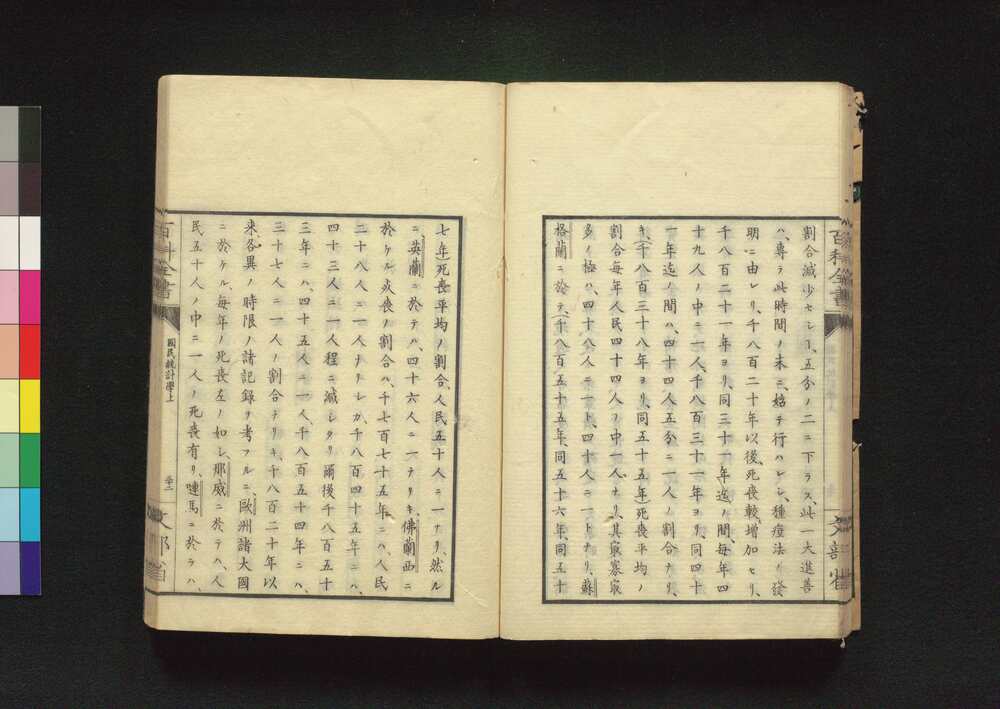 割合減少セシヿ、五分ノ二ニ下ラス、此一大進善
ハ、專ラ此時間ノ末ニ、始テ行ハレシ、種痘法ノ發
明ニ由レリ、千八百二十年以後、死喪較増加セリ、
千八百二十一年ヨリ、同三十一年迄ノ間、毎年四
十九人ノ中ニ一人、千八百三十一年ヨリ、同四十
一年迄ノ間ハ、四十四人五分ニ一人ノ割合ナリ、
キ、(千八百三十八年ヨリ、同五十五年)死喪平均ノ
割合毎年人民四十四人ノ中一人ナリ、其最寡最
多ノ極ハ、四十八人ニ一ト、四十人ニ一トナリ、蘇
格蘭ニ於テ、(千八百五十五年、同五十六年、同五十
百科全書
文部省
七年)死喪平均ノ割合、人民五十人ニ一ナリ、然ル
ニ、英蘭ニ於テハ、四十六人ニ一ナリキ、佛蘭西ニ
於ケル死喪ノ割合ハ、千七百七十五年ニハ、人民
二十八人ニ一人ナリシカ、千八百四十五年ニハ、
四十三人ニ一人程ニ減シタリ爾後千八百五十
三年ニハ、四十五人ニ一人、千八百五十四年ニハ、
三十七人ニ一人ノ割合ナリキ、千八百二十年以
來、各異ノ時限ノ諸記録ヲ考フルニ、歐洲諸大國
ニ於ケル、毎年ノ死喪左ノ如シ、那威ニ於テハ、人
民五十人ノ中ニ一人ノ死喪有リ、嗹馬ニ於テハ、
百科全書
國民統計學上
文部省